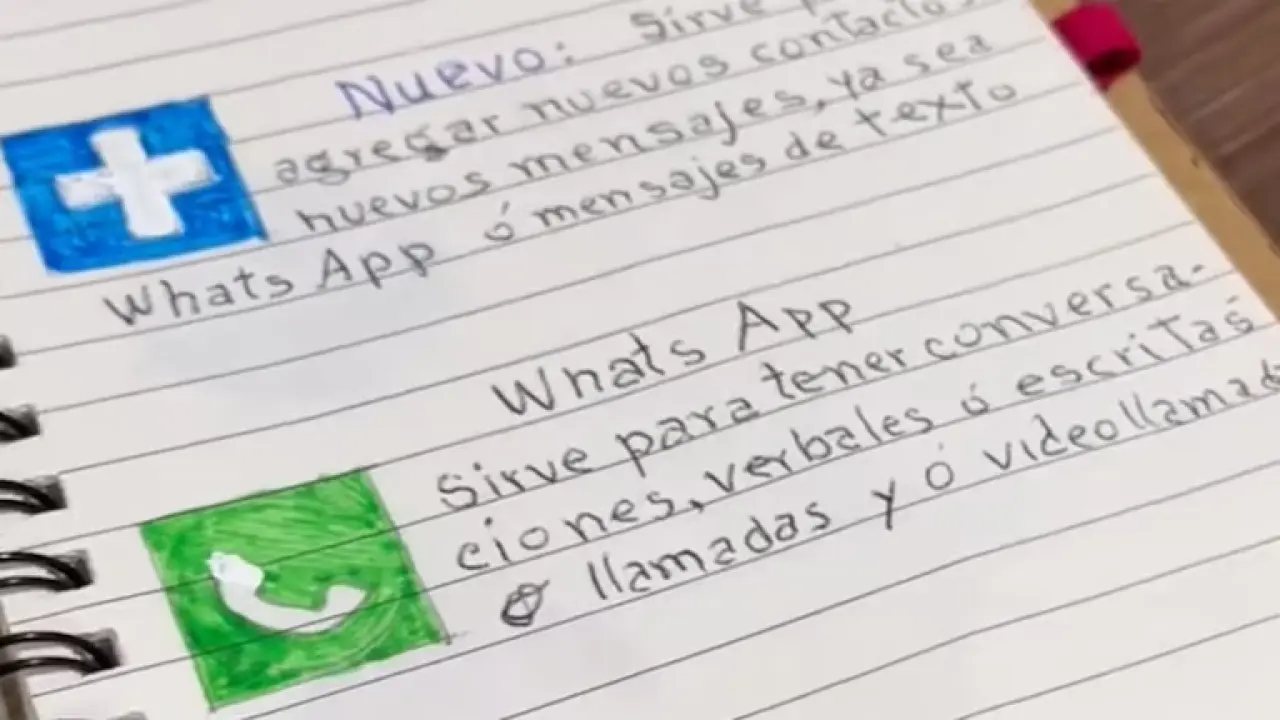 Nuevo: Sirve
agregar nuevos contactos
nuevos mensajes, ya sea
Whats App ó mensajes de texto
Whats App
Sirve para tener conversa-
ciones, verbales ó escritas
o llamadas y ó videollamad